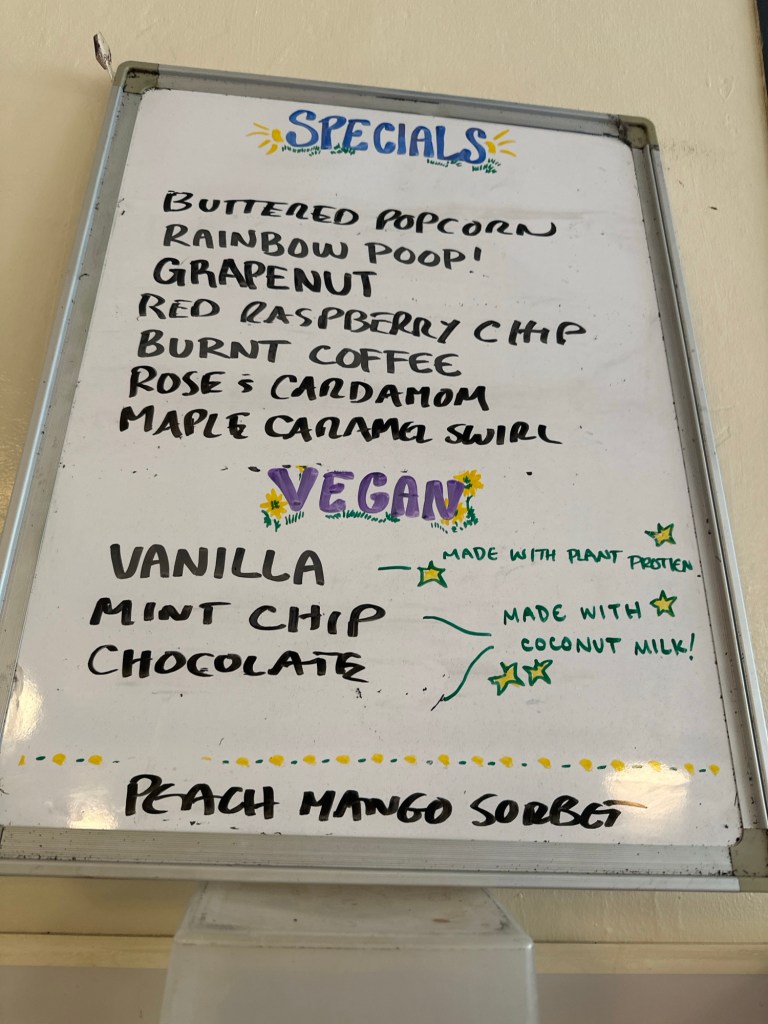 SPECIALS
BUTTERED POPCORN
RAINBOW POOP!
GRAPENUT
RED RASPBERRY CHIP
BURNT COFFEE
ROSE & CARDAMOM
MAPLE CARAMEL SWIRL
VEGAN
VANILLA — MADE WITH PLANT PROTIEN
MINT CHIP MADE WITH
CHOCOLATE COCONUT MILK!
PEACH MANGO SORBET